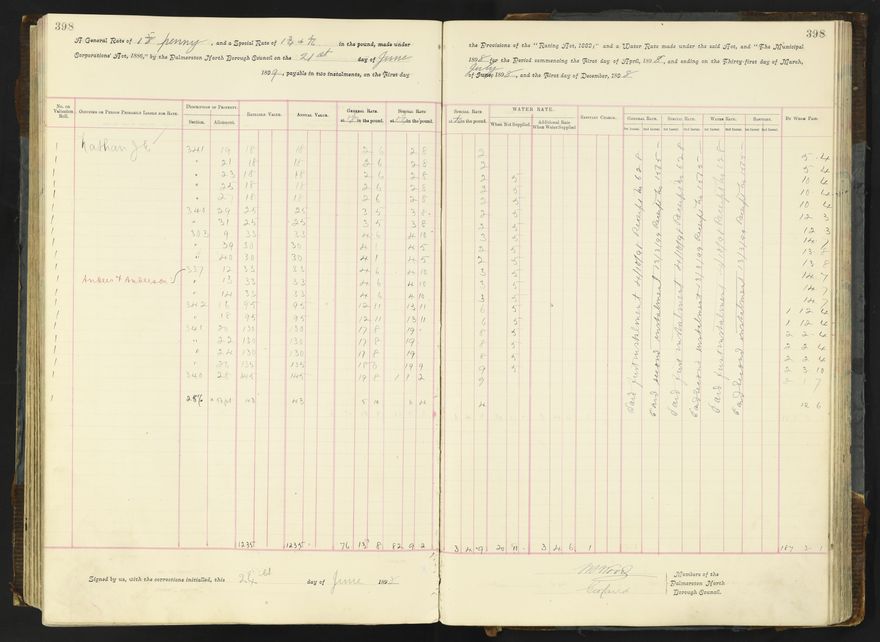 398
398
A General Rate of penny, and a Special Rate of in the pound, made under
Corporations' Act, 1886," by the Palmerston North Borough Council on the 21st day of June
payable in two instalments, on the First day
the Provisions of the "Rating Act, 1882;" and a Water Rate made under the said Act, and "The Municipal
1898 for the Period commencing the First day of April, 1898, and ending on the Thirty-first day of March,
July
of June, 1898, and the First day of December, 1898
No. on Valuation Roll.
Occupier or Person Primarily Liable for Rate.
Description of Property.
Section. Allotment.
Rateable Value.
Annual Value.
General Rate at in the pound.
Special Rate at in the pound.
Special Rate at in the pound.
WATER RATE.
When Not Supplied.
Additional Rate When Water Supplied
Sanitary Charge.
General Rate. Special Rate. Water Rate. Sanitary.
By Whom Paid.
1 Nathan J E 341 19 18 18 2 6 2 8 2 5 4
1 " 21 18 18 2 6 2 8 2 5 4
1 " 23 18 18 2 6 2 8 2 5 10 4
1 " 25 18 18 2 6 2 8 2 5 10 4
1 " 18 18 2 6 2 8 2 5 10 4
1 341 29 25 25 3 5 3 8 2 5 12 3
1 " 31 25 25 3 5 3 8 2 5 12 3
1 303 9 33 33 4 6 4 10 3 5 14 7
1 " 39 30 30 4 1 4 5 2 5 13 8
1 " 40 30 30 4 1 4 5 2 5 13 8
1 337 12 33 33 4 6 4 10 3 5 14 7
1 Andrew & Anderson " 13 33 33 4 6 4 10 3 5 14 7
1 " 14 33 33 4 6 4 10 3 5 14 7
1 342 16 95 95 12 11 13 11 6 5 1 12 4
1 " 18 95 95 12 11 13 11 6 5 1 12 4
1 341 20 130 130 17 8 19 8 5 2 2 4
1 " 22 130 130 17 8 19 8 5 2 2 4
1 " 24 130 130 17 8 19 8 5 2 2 4
1 135 135 18 19 9 9 5 2 3 10
1 340 28 145 145 19 8 1 1 2 9 2 1 7
1 286 43 43 4 12 6
Paid first instalment 4/10/98 Receipt No 628
Paid second instalment 13/3/99 Receipt No 1075
Paid first instalment 4/10/98 Receipt No 628
Paid second instalment 13/3/99 Receipt No 1075
Paid first instalment 4/10/98 Receipt No 628
Paid second instalment 13/3/99 Receipt No 1075
1235 1235 76 13 8 82 9 2 3 4 9 20 11 3 4 6 1 187 3 1
Signed by us, with the corrections initialled, this 24th day of June 1898
Members of the
Palmerston North
Borough Council.